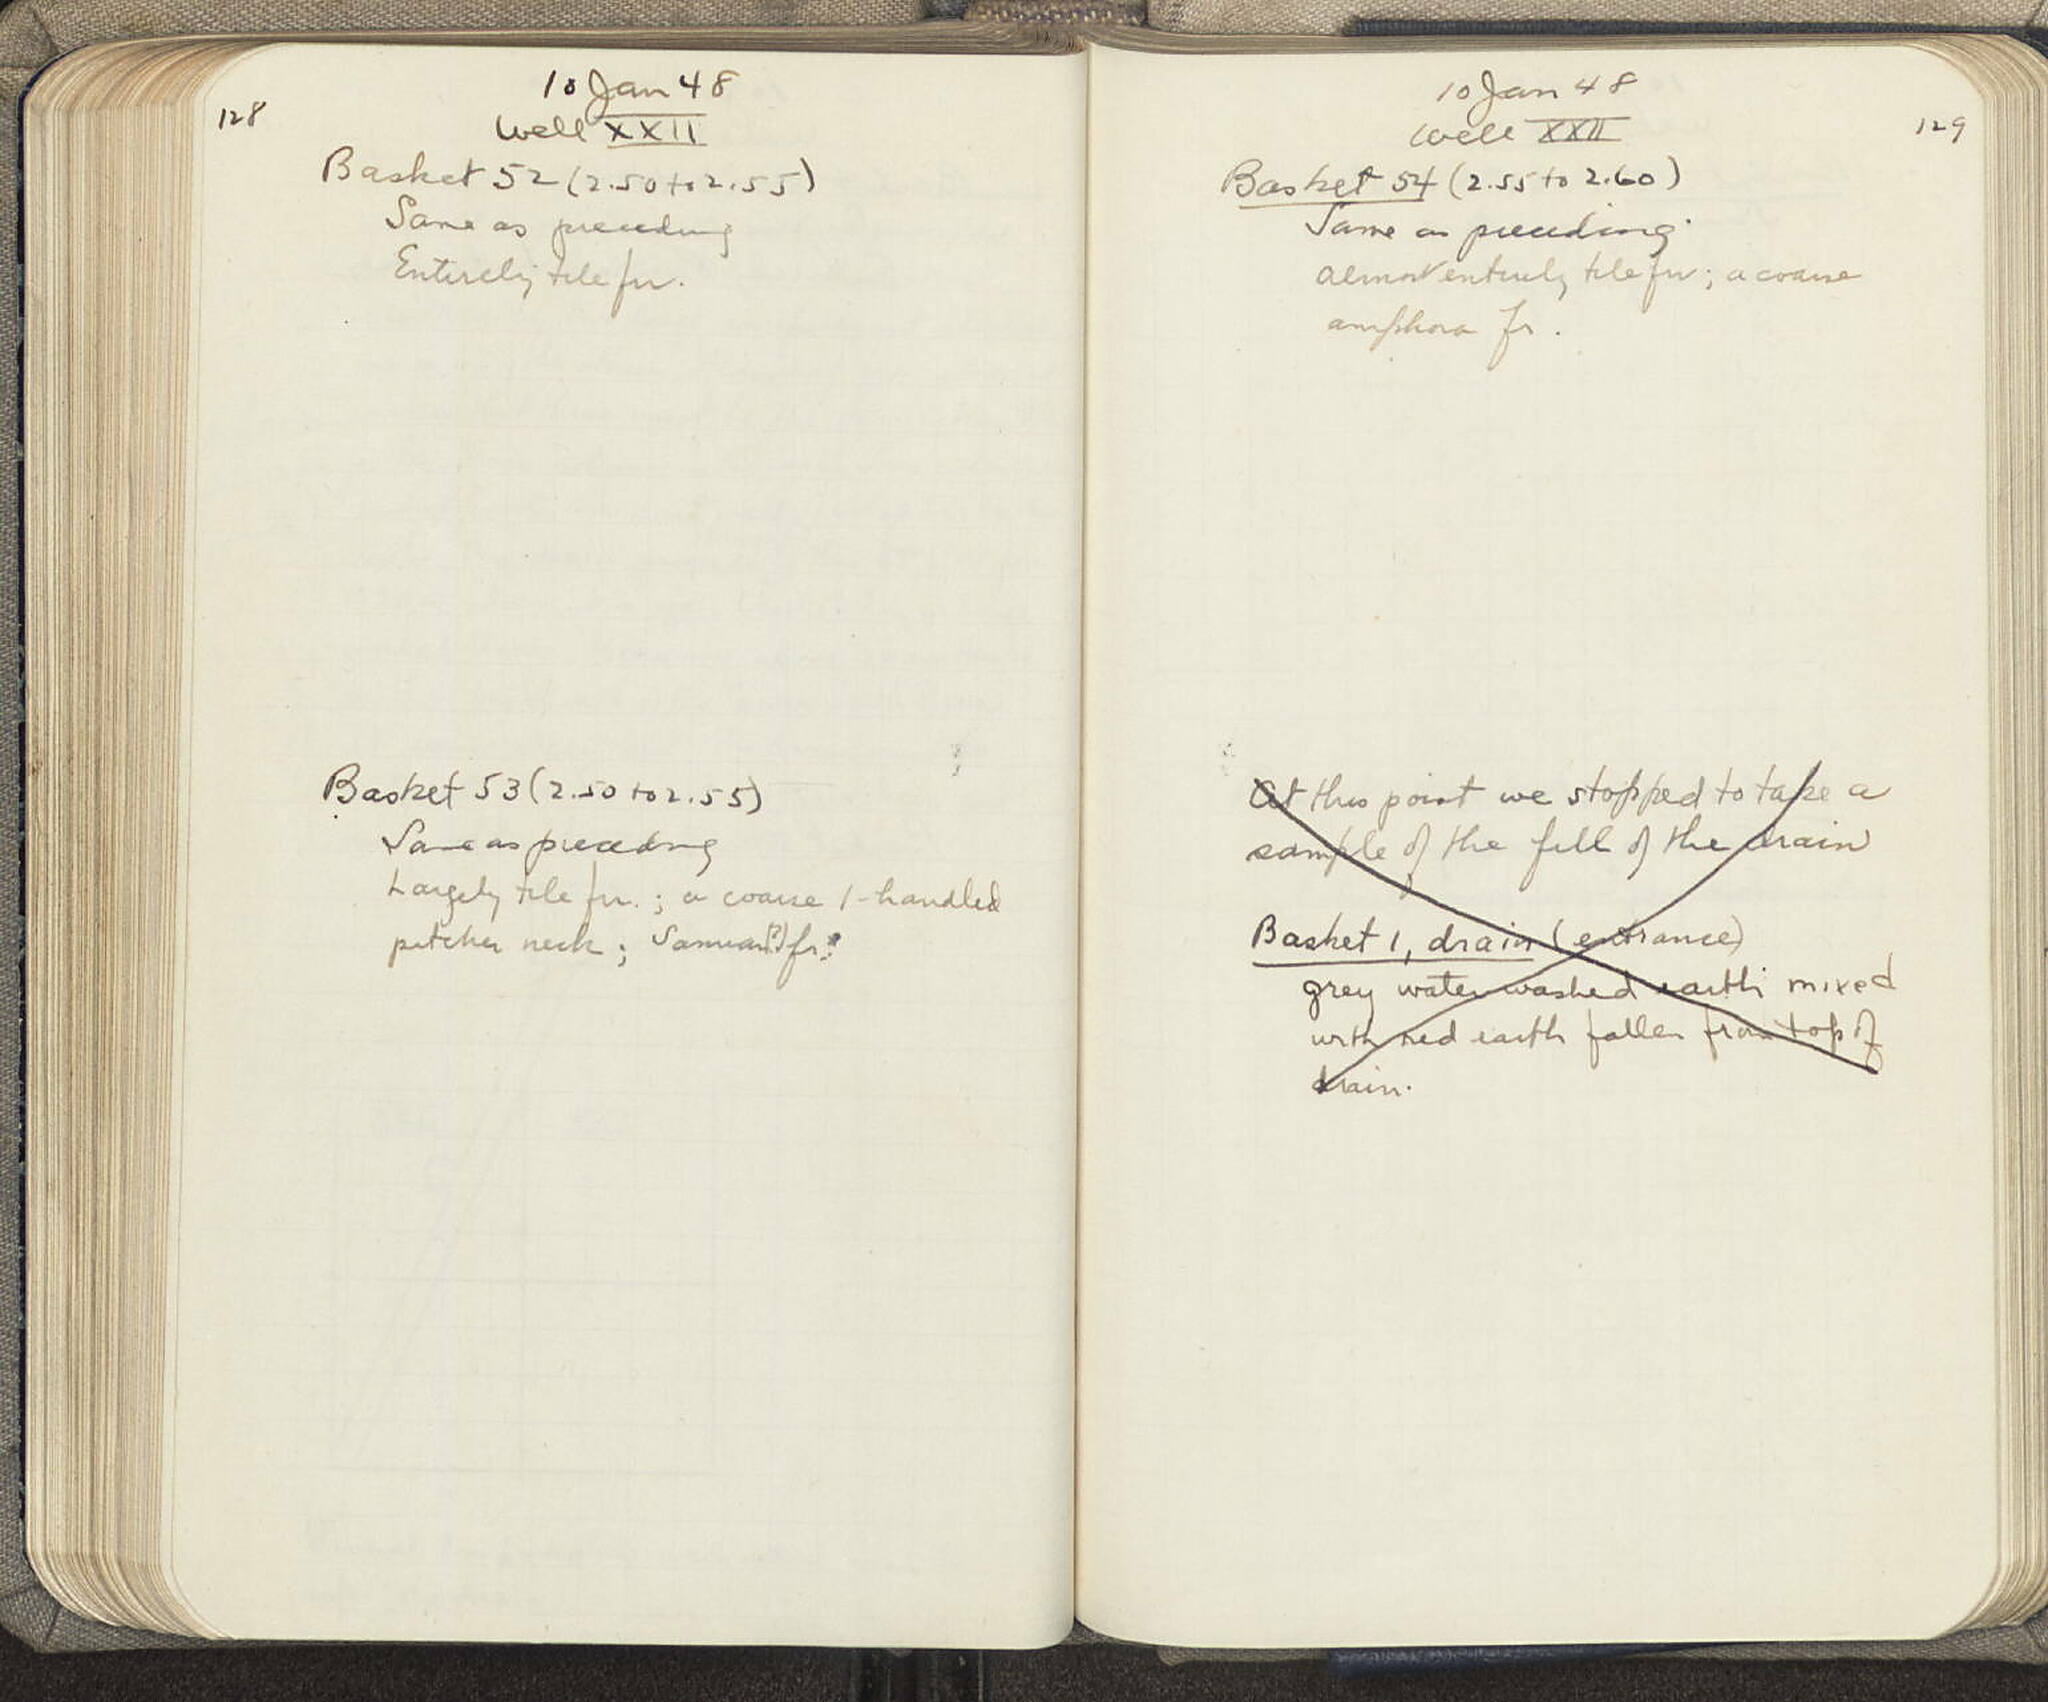 128
10 Jan 48
Well XXII
Basket 52 (2.50 to 2.55)
Same as preceding
Entirely tile frr.
Basket 53 (2.50 to 2.55)
Same as preceding
Largely tile frr. ; a coarse 1-handled
pitcher neck ; Samian(?) fr.
10 Jan 48
Well XXII
129
Basket 54 (2.55 to 2.60)
Same as preceding.
Almost entirely tile frr ; a coarse
amphora fr.
At this point we stopped to take a
sample of the fill of the drain
Basket 1, drain (entrance)
grey water washed earth mixed
with red earth fallen from top of
drain.